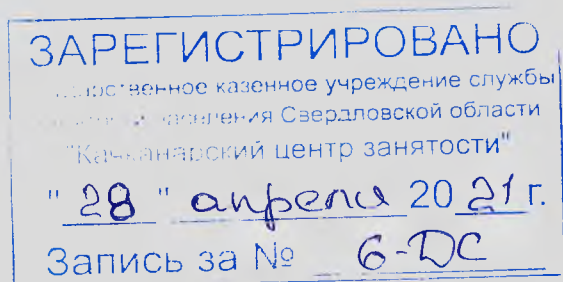 ЗАРЕГИСТРИРОВАНО
казенное учреждение службы
населения Свердловской области
"Качканарский центр занятости"
" 28 " апреля 20 21 г.
Запись за № 6-ДС